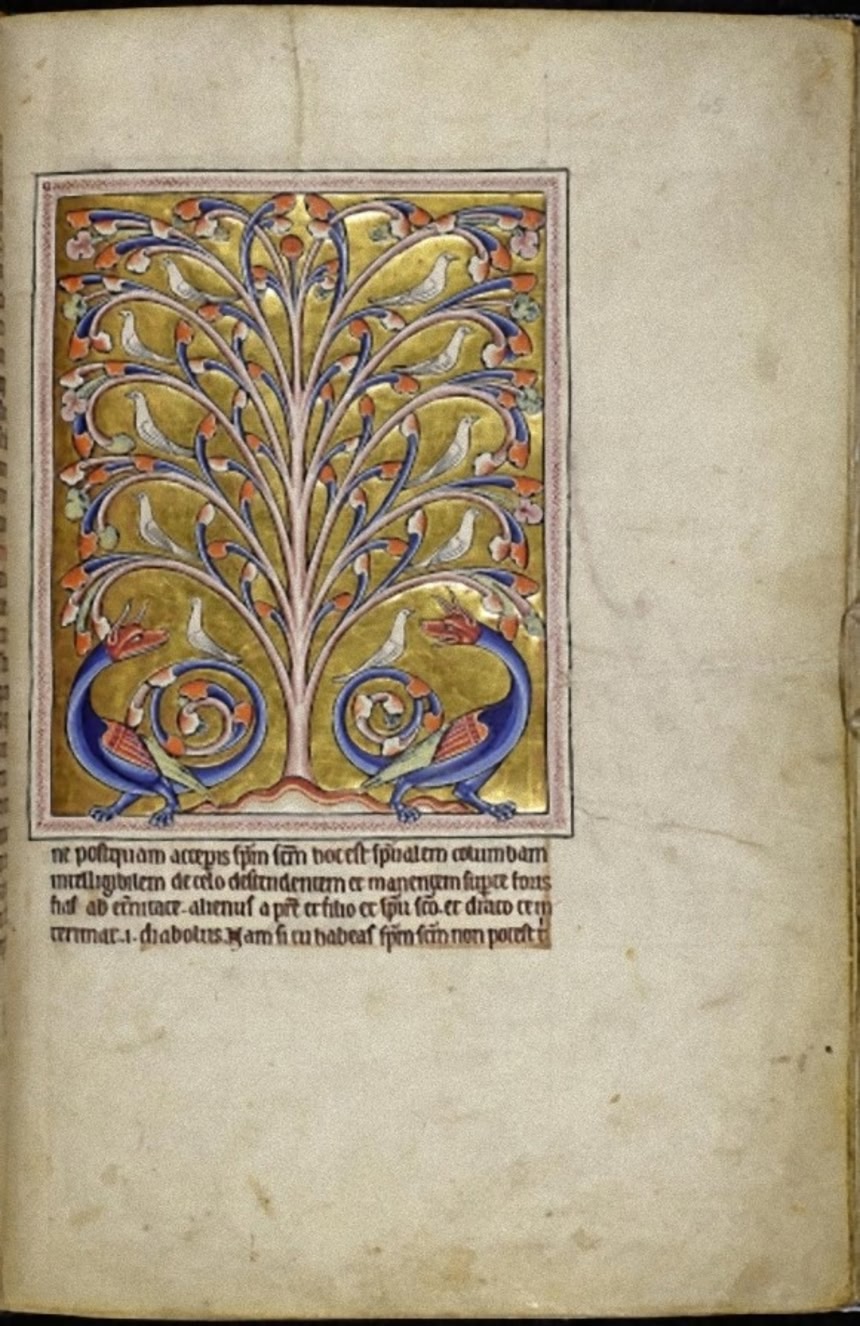 ne postquam accepis spm scm hoc est spūalem columbam
intelligibilem de celo descendentem et manentem sup te foris
fias ab etnitate. alienus a pre et filio et spu sco. et draco te in
terimat .i. diabolus. Nam si tu habeas spm scm non potest t